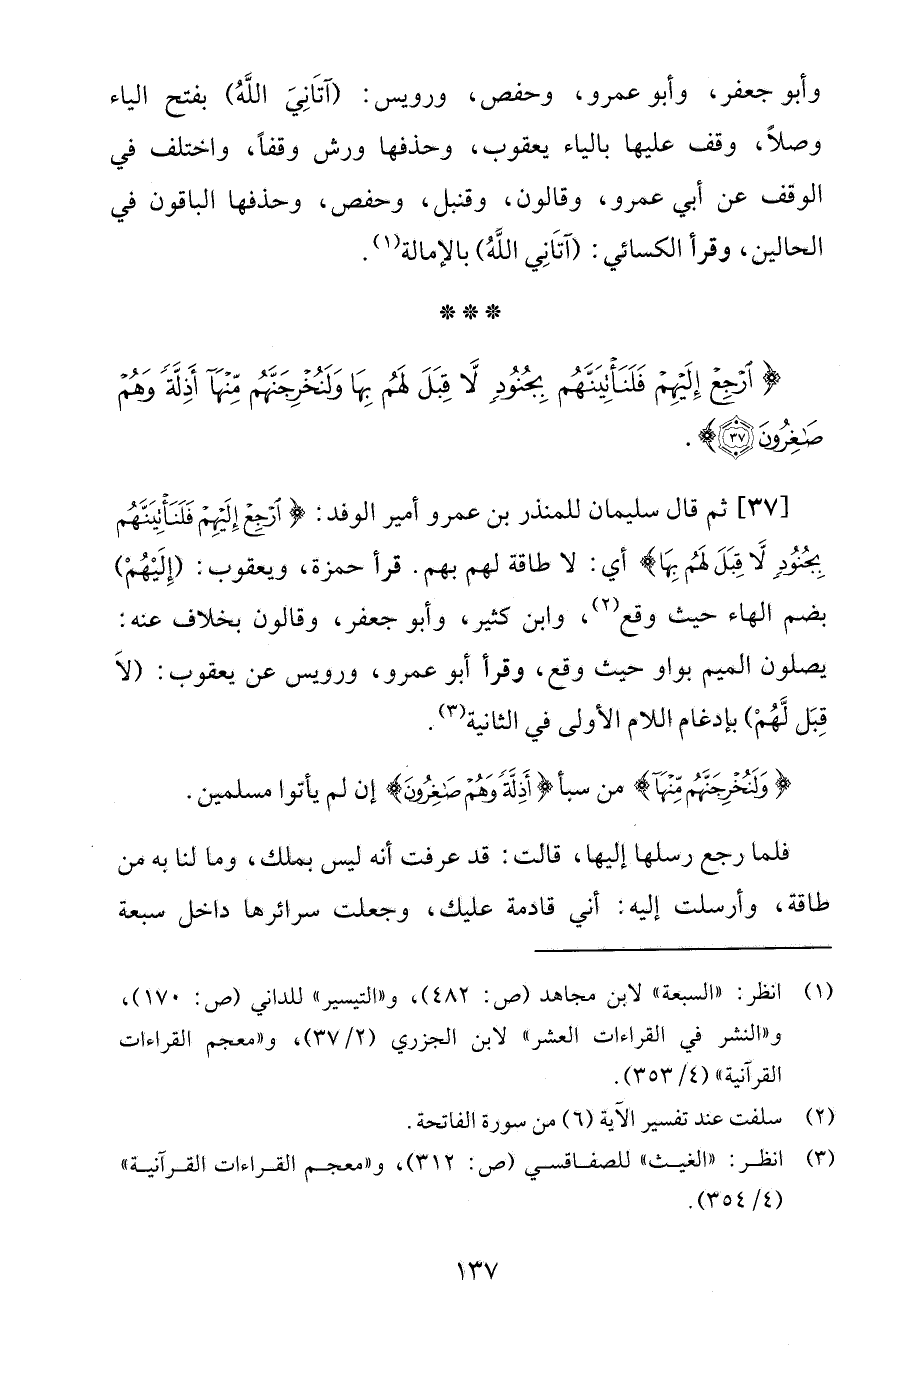 وأبو جعفر، وأبو عمرو، وحفص، ورويس: (آتَانِيَ اللَّهُ) بفتح الياء
وصلاً، وقف عليها بالياء يعقوب، وحذفها ورش وقفاً، واختلف في
الوقف عن أبي عمرو، وقالون، وقنبل، وحفص، وحذفها الباقون في
الحالين، وقرأ الكسائي: (آتَانِي اللَّهُ) بالإمالة(١).
* * *
﴿ ٱرْجِعْ إِلَيْهِمْ فَلَنَأْتِيَنَّهُم بِجُنُودٍ لَّا قِبَلَ لَهُم بِهَا وَلَنُخْرِجَنَّهُم مِّنْهَآ أَذِلَّةً وَهُمْ
صَٰغِرُونَ ٣٧ ﴾.
[٣٧] ثم قال سليمان للمنذر بن عمرو أمير الوفد: ﴿ ٱرْجِعْ إِلَيْهِمْ فَلَنَأْتِيَنَّهُم
بِجُنُودٍ لَّا قِبَلَ لَهُم بِهَا﴾ أي: لا طاقة لهم بهم. قرأ حمزة، ويعقوب: (إِلَيْهُمْ)
بضم الهاء حيث وقع(٢)، وابن كثير، وأبو جعفر، وقالون بخلاف عنه:
يصلون الميم بواو حيث وقع، وقرأ أبو عمرو، ورويس عن يعقوب: (لاَ
قِبَل لَّهُمْ) بإدغام اللام الأولى في الثانية(٣).
﴿ وَلَنُخْرِجَنَّهُم مِّنْهَآ﴾ من سبأ ﴿أَذِلَّةً وَهُمْ صَٰغِرُونَ﴾ إن لم يأتوا مسلمين.
فلما رجع رسلها إليها، قالت: قد عرفت أنه ليس بملك، وما لنا به من
طاقة، وأرسلت إليه: أني قادمة عليك، وجعلت سرائرها داخل سبعة
(١) انظر: «السبعة» لابن مجاهد (ص: ٤٨٢)، و«التيسير» للداني (ص: ١٧٠)،
و«النشر في القراءات العشر» لابن الجزري (٢/ ٣٧)، و«معجم القراءات
القرآنية» (٤/ ٣٥٣).
(٢) سلفت عند تفسير الآية (٦) من سورة الفاتحة.
(٣) انظر: «الغيث» للصفاقسي (ص: ٣١٢)، و«معجم القراءات القرآنية»
(٤/ ٣٥٤).
١٣٧